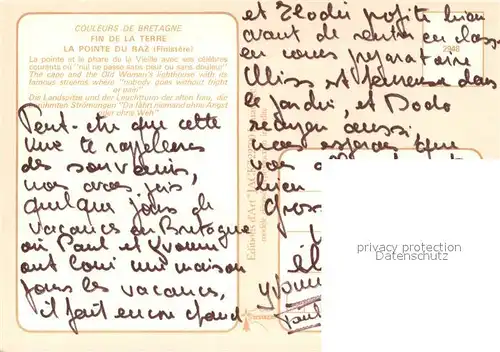 COULEURS DE BRETAGNE
FIN DE LA TERRE
LA POINTE DU RAZ (Finistère)
La pointe et le phare de la Vieille avec ses célèbres
courants où "nul ne passe sans peur ou sans douleur"
The cape and the Old Woman's lighthouse with its
famous streams where "nobody goes without fright
or pain"
Die Landspitze und der Leuchtturm der alten Frau, die
berühmten Strömungen "Da fährt niemand ohne Angst
oder ohne Weh"
Peut-être que cette
vue te rappellera
des souvenirs,
nous avons pris
quelques jours de
vacances en Bretagne
où Paul et Yvonne
ont loué une maison
pour les vacances,
il fait encore chaud
2948
et Elodie profite bien
avant de rentrer en classe
en cours préparatoire
est heureuse dans
le jardin, et Dodo
aussi,
nous espérons que
vous
bien
Gros
Yvonne
Paul
Editions d'Art "JACK"
privacy protection
Datenschutz